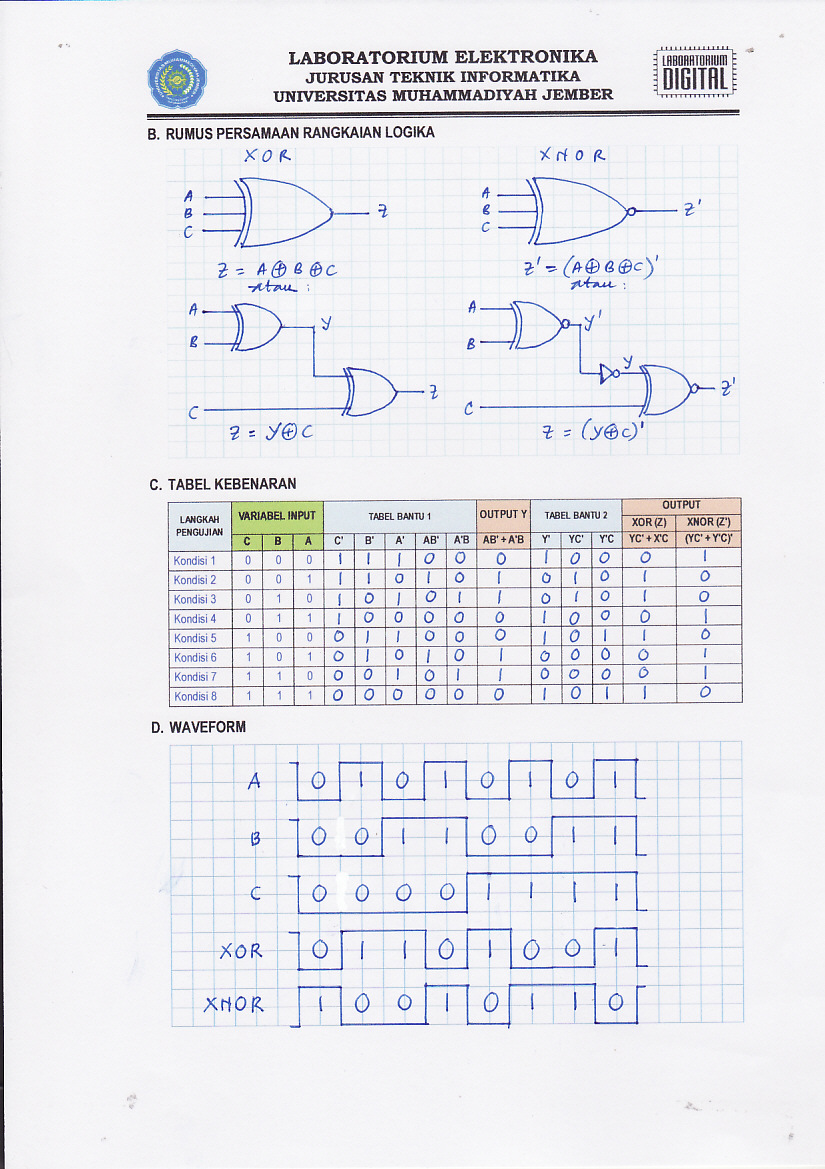 LABORATORIUM ELEKTRONIKA
JURUSAN TEKNIK INFORMATIKA
UNIVERSITAS MUHAMMADIYAH JEMBER
LABORATORIUM
DIGITAL
B. RUMUS PERSAMAAN RANGKAIAN LOGIKA
XOR XNOR
A A
B Z B Z'
C C
Z = A⊕B⊕C Z' = (A⊕B⊕C)'
atau : atau :
A Y A Y'
B B Y
Z Z'
C C
Z = Y⊕C Z = (Y⊕C)'
C. TABEL KEBENARAN
LANGKAH PENGUJIAN VARIABEL INPUT TABEL BANTU 1 OUTPUT Y TABEL BANTU 2 OUTPUT
XOR (Z) XNOR (Z')
C B A C' B' A' AB' A'B AB' + A'B Y' YC' Y'C YC' + X'C (YC' + Y'C)'
Kondisi 1 0 0 0 1 1 1 0 0 0 1 0 0 0 1
Kondisi 2 0 0 1 1 1 0 1 0 1 0 1 0 1 0
Kondisi 3 0 1 0 1 0 1 0 1 1 0 1 0 1 0
Kondisi 4 0 1 1 1 0 0 0 0 0 1 0 0 0 1
Kondisi 5 1 0 0 0 1 1 0 0 0 1 0 1 1 0
Kondisi 6 1 0 1 0 1 0 1 0 1 0 0 0 0 1
Kondisi 7 1 1 0 0 0 1 0 1 1 0 0 0 0 1
Kondisi 8 1 1 1 0 0 0 0 0 0 1 0 1 1 0
D. WAVEFORM
A 0 1 0 1 0 1 0 1
B 0 0 1 1 0 0 1 1
C 0 0 0 0 1 1 1 1
XOR 0 1 1 0 1 0 0 1
XNOR 1 0 0 1 0 1 1 0